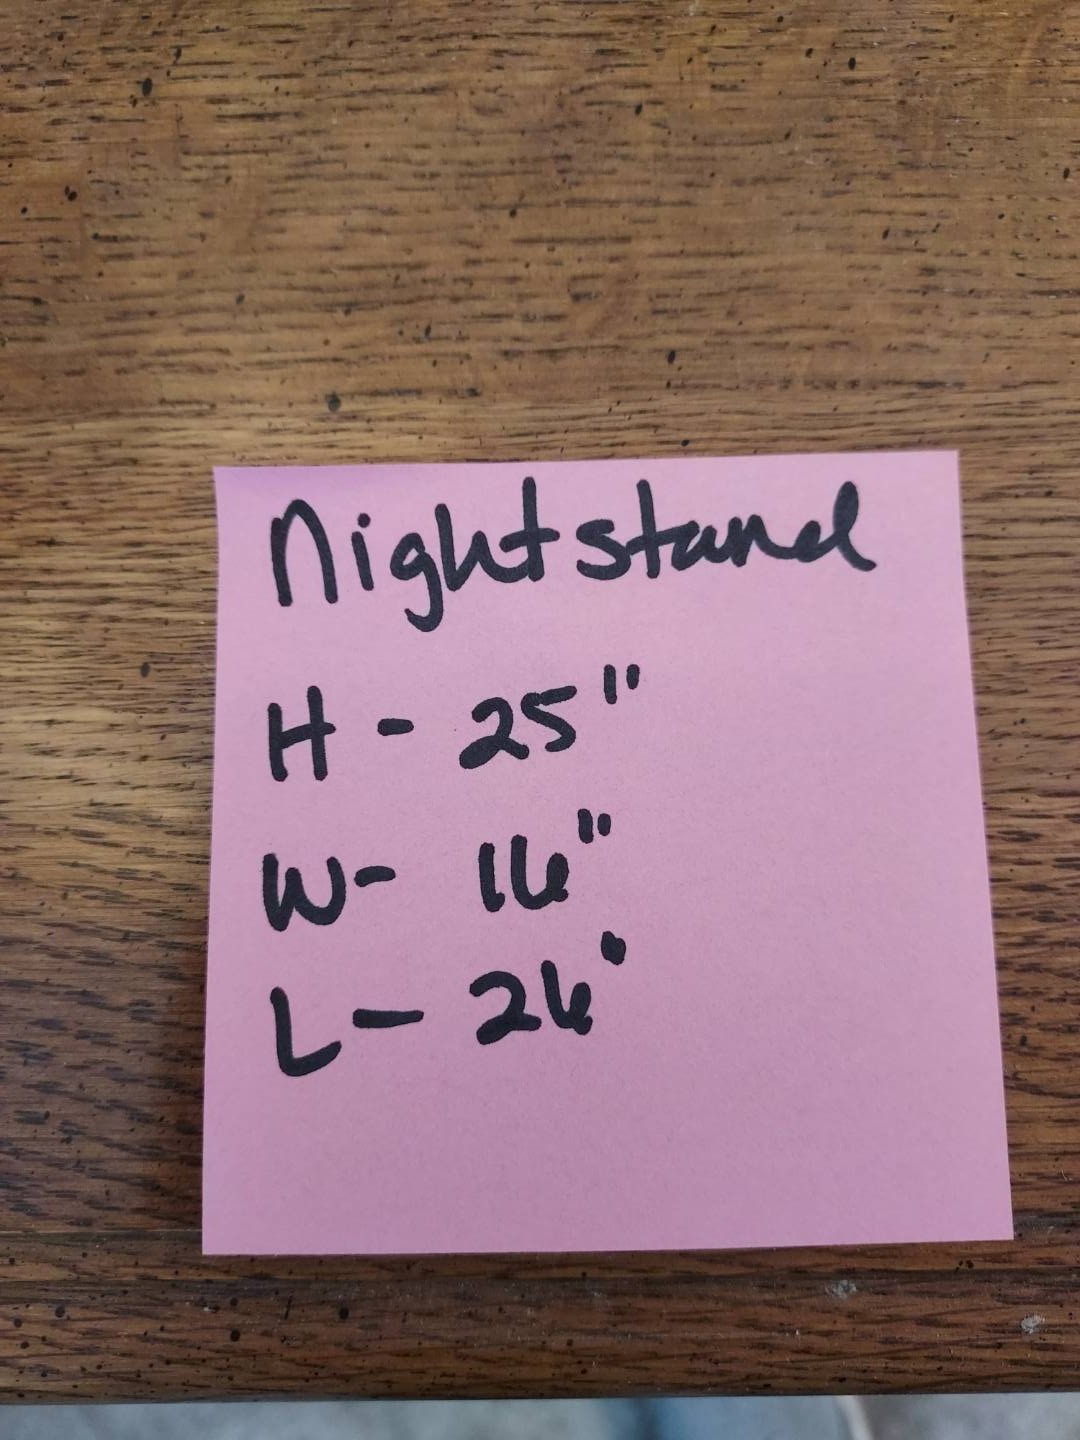 Nightstand
H - 25"
W- 16"
L - 26"